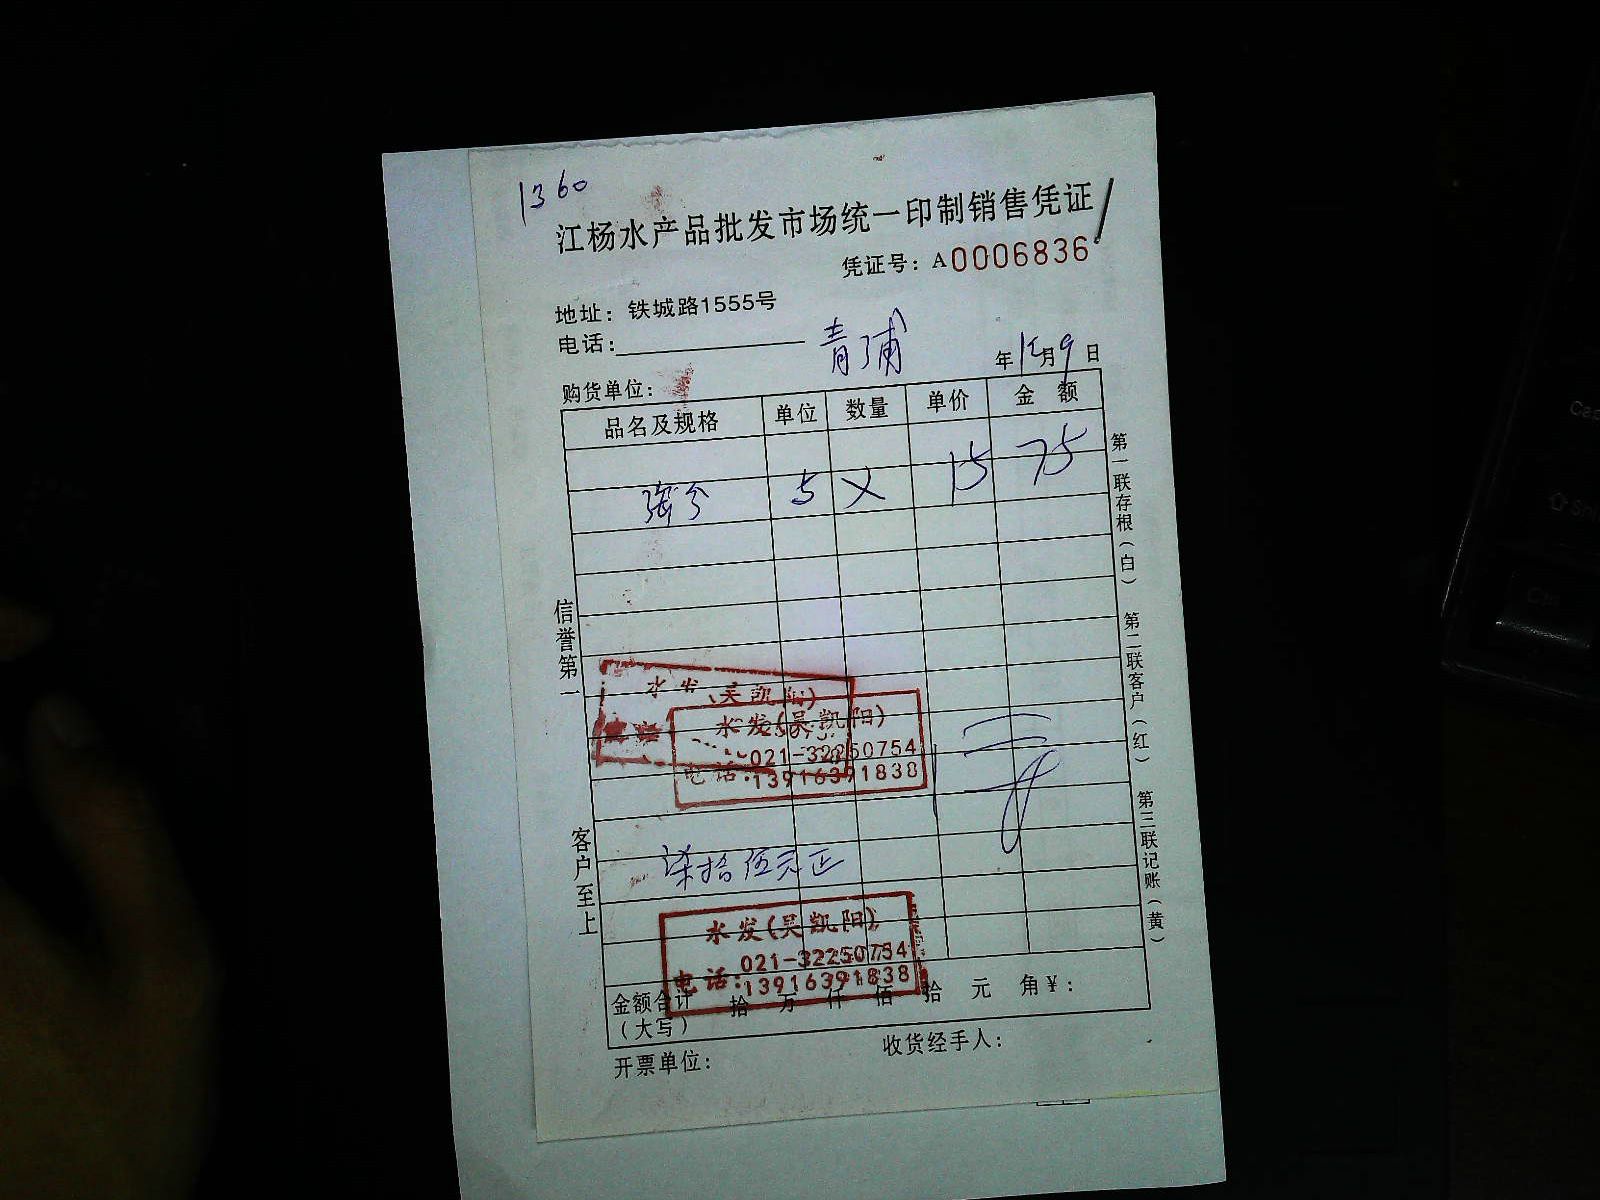 1360
江杨水产品批发市场统一印制销售凭证
凭证号：A0006836
地址：铁城路1555号
电话：
青浦
年12月9日
购货单位：
品名及规格 单位 数量 单价 金额
5 15 75
第一联存根（白） 第二联客户（红） 第三联记账（黄）
信誉第一 客户至上
水发(吴凯阳)
水发(吴凯阳)
021-32250754
电话:13916391838
柒拾伍元正
水发(吴凯阳)
021-32250754
电话:13916391838
金额合计（大写） 拾 万 仟 佰 拾 元 角￥：
开票单位： 收货经手人：